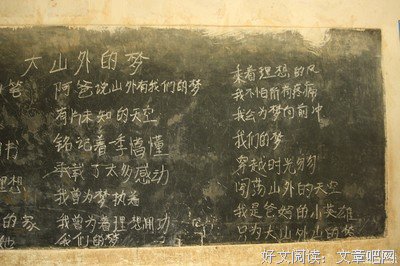 大山外的梦
爸
阿爸说山外有我们的梦
有片未知的天空
书
铭记着季懵懂
承载了太多感动
理想
我曾为梦执着
的家
我曾为着理想用功
她
我们的梦
乘着理想的风
我不怕所有疼痛
我会为梦向前冲
我们的梦
穿越时光匆匆
闯荡山外的天空
我是爸妈的小英雄
只为大山外的梦
好文阅读：文章吧网